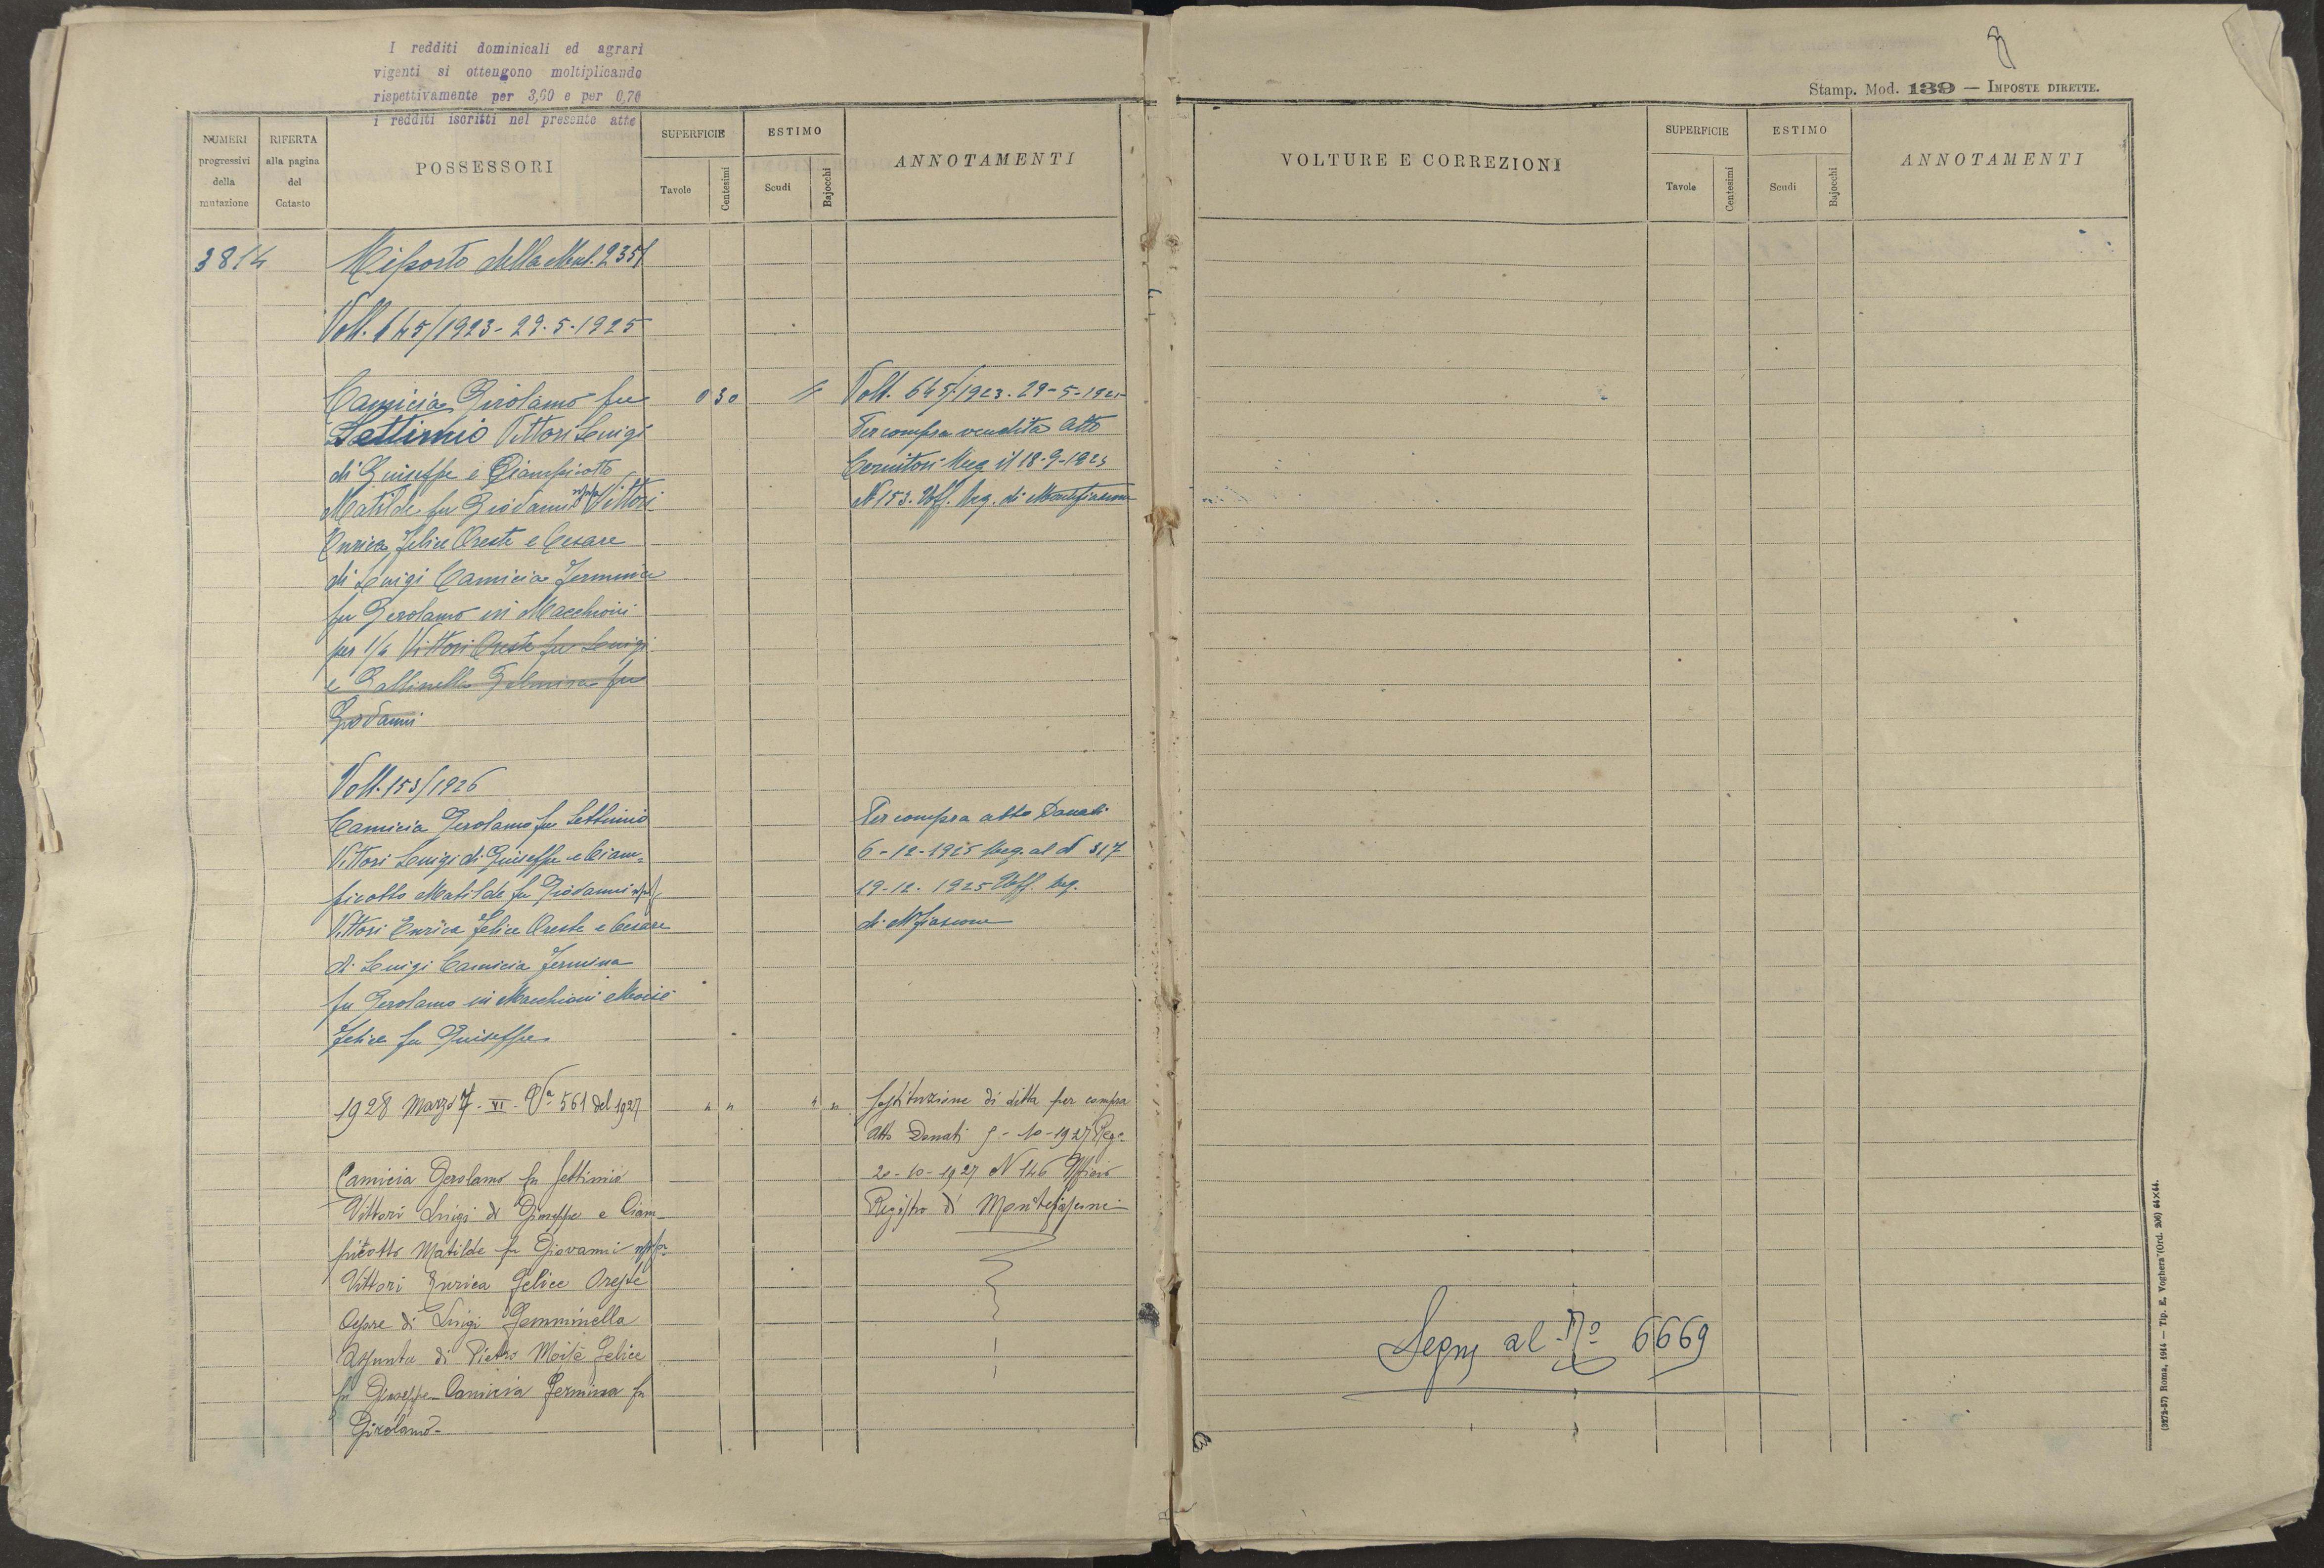 I redditi dominicali ed agrari
vigenti si ottengono moltiplicando
rispettivamente per 3,60 e per 0,70
i redditi iscritti nel presente atto
NUMERI progressivi della mutazione
RIFERTA alla pagina del Catasto
POSSESSORI
SUPERFICIE
Tavole
Centesimi
ESTIMO
Scudi
Bajocchi
ANNOTAMENTI
3814
Riporto della Mut. 2351
Volt. 645/1923 - 29.5.1925
Camicia Girolamo fu
Settimio Vittori Luigi
di Guiseppe e Ciampicotto
Matilde fu Giovanni Vittori
Enrica, Felice Oreste e Cesare
di Luigi Camicia Fermina
fu Gerolamo in Macchioni
per 1/4 Vittori Oreste fu Luigi
e Gallinella Gelmira fu
Giovanni
0 30
Volt. 645/1923. 29-5-1925
Per compra vendita atto
Reg. il 18-9-1923
N 153. Uff. Reg. di Montefiascone
Volt. 153/1926
Camicia Gerolamo fu Settimio
Vittori Luigi di Guiseppe e Ciam=
picotto Matilde fu Giovanni
Vittori Enrica Felice Oreste e Cesare
di Luigi Camicia Fermina
fu Gerolamo in Macchioni Moisè
Felice fu Guiseppe
Per compra atto Donati
6-12-1925 Reg. al N 317
19-12-1925 Uff. Reg.
di Mfiascone
1928 Marzo 7. VI. Va 561 del 1927
" "
" "
Sostituzione di ditta per compra
Atto Donati 9-10-1927 Rega
20-10-1927 N 146 Ufficio
Registro di Montefiascone
Camicia Gerolamo fu Settimio
Vittori Luigi di Giuseppe e Ciam-
picotto Matilde fu Giovanni
Vittori Enrica Felice Oreste
Cesare di Luigi Gemminella
Assunta di Pietro Moisè Felice
fu Giuseppe - Camicia Fermina fu
Girolamo -
Stamp. Mod. 139 — IMPOSTE DIRETTE.
VOLTURE E CORREZIONI
SUPERFICIE
Tavole
Centesimi
ESTIMO
Scudi
Bajocchi
ANNOTAMENTI
Segue al No 6669
(3272-57) Roma, 1914 — Tip. E. Voghera (Ord. 206) 64×44.